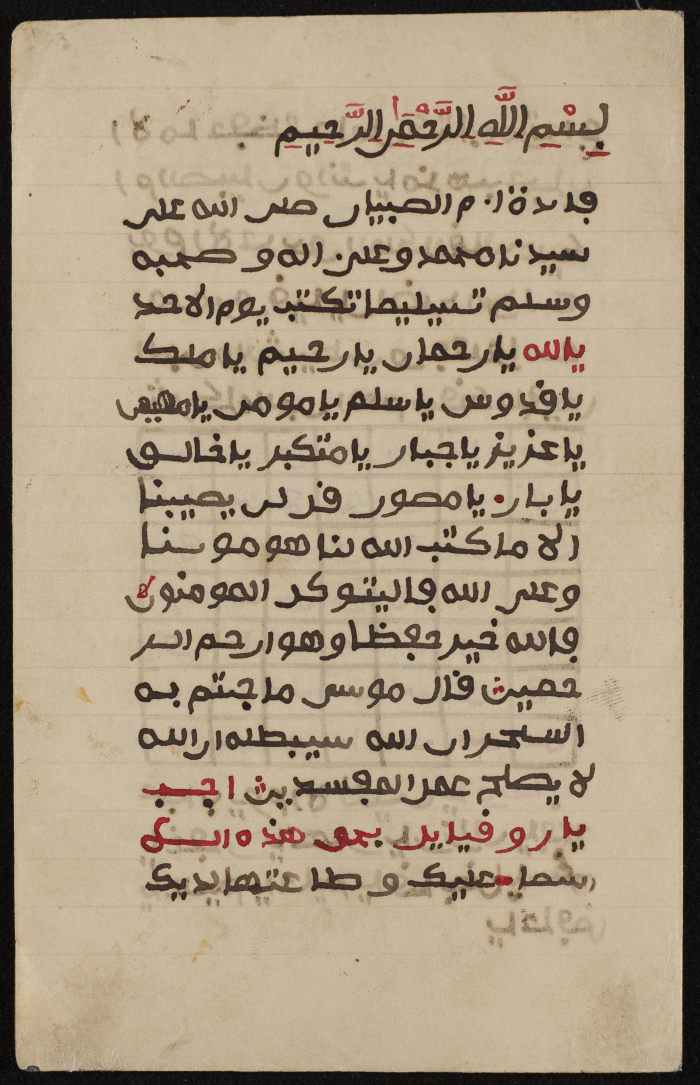 بِسْمِ اللَّهِ الرَّحْمٰنِ الرَّحِيمِ
فايدة ام الصبيان صلى الله على
سيدنا محمد وعلى اله وصحبه
وسلم تسليما تكتب يوم الاحد
يالله يارحمان يارحيم ياملك
ياقدوس ياسلم يامومن يامهيمن
ياعزيز ياجبار يامتكبر ياخالق
يابار يامصور قل لن يصيبنا
الا ما كتب الله لنا هو مولنا
وعلى الله فاليتوكل المومنون
فالله خير حفظا وهو ارحم الر
حمين قال موسى ما جيتم به
السحر ان الله سيبطله ان الله
لا يصلح عمل المفسدين اجب
ياروفيايل بحق هذه الا
سما عليك وطاعتها لديك